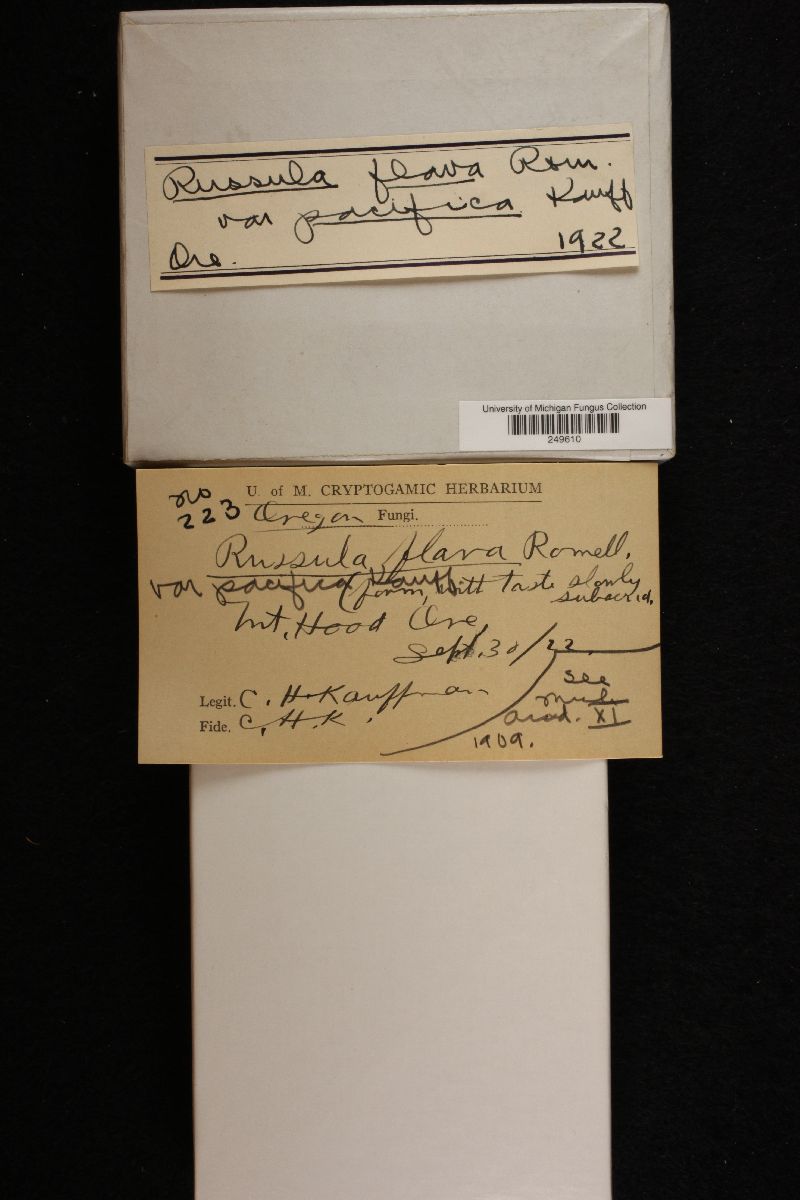 Russula flava Rom.
var pacifica Kauff
Ore. 1922
University of Michigan Fungus Collection
249610
U. of M. CRYPTOGAMIC HERBARIUM
no
223 Oregon Fungi.
Russula flava Romell.
var pacifica Kauff.
(form, with taste slowly
subacrid,
Mt. Hood Ore,
Sept. 30/22.
Legit. C. H. Kauffman
Fide. C. H. K.
see
Mich.
acad. XI
1909.